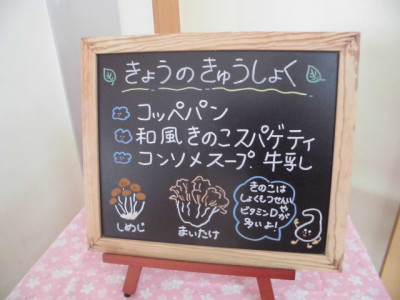 きょうのきゅうしょく
コッペパン
和風きのこスパゲティ
コンソメスープ 牛乳
しめじ
まいたけ
きのこは
しょくもつせんいや
ビタミンDが
多いよ!